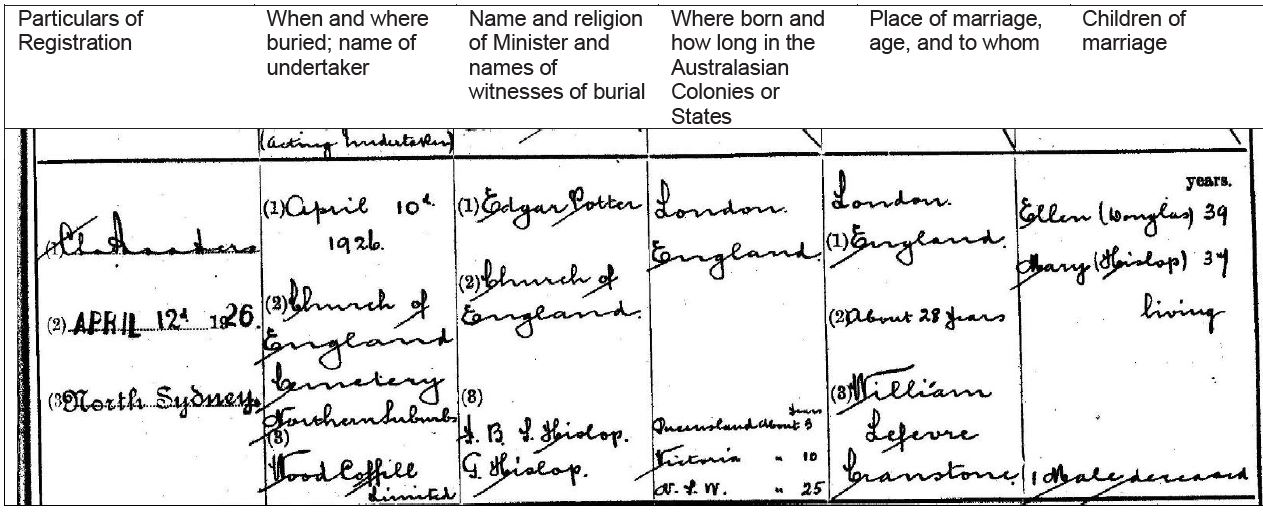 Particulars of
Registration
When and where
buried; name of
undertaker
Name and religion
of Minister and
names of
witnesses of burial
Where born and
how long in the
Australasian
Colonies or
States
Place of marriage,
age, and to whom
Children of
marriage
(acting Undertaker)
(1)
(2) APRIL 12d 1926.
(3) North Sydney.
(1) April 10d.
1926.
(2) Church of
England
Cemetery
Northern Suburbs
(3)
Wood Coffill
Limited
(1) Edgar Potter
(2) Church of
England.
(3)
B. L. Hislop.
G. Hislop.
London.
England.
years
Queensland about 3
Victoria " 10
N. S. W. " 25
London.
(1) England.
(2) About 28 years
(3) William
Lefevre
Cranstone.
years.
Ellen (Douglas) 39
Mary (Hislop) 37
living
1 Male deceased